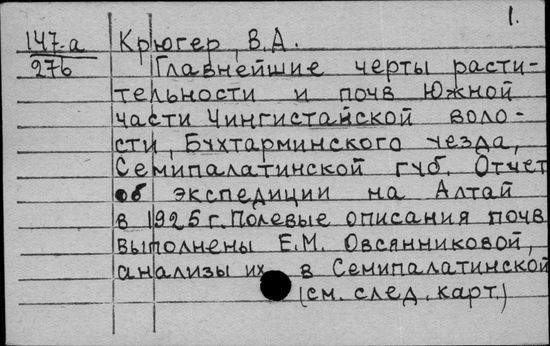 1.
147-а Крюгер, В.А.
276 Главнейшие черты расти-
тельности и почв Южной
части Чингистайской воло-
сти, Бухтарминского уезда,
Семипалатинской губ. Отчет
об экспедиции на Алтай
в 1925 г. Полевые описания почв
выполнены Е.М. Овсянниковой,
анализы их в Семипалатинской
(см. след. карт.)